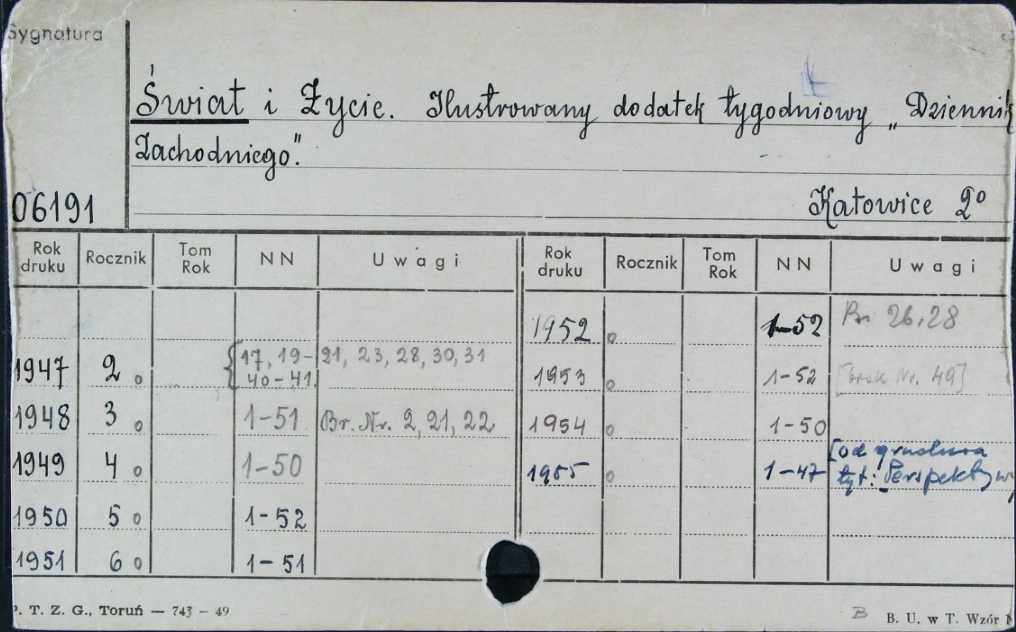 Sygnatura
Świat i Życie. Ilustrowany dodatek tygodniowy „Dziennik
Zachodniego".
06191
Katowice 2º
Rok druku Rocznik Tom Rok NN Uwagi Rok druku Rocznik Tom Rok NN Uwagi
1952 o 1-52 Br 26, 28
1947 2 o {17, 19-21, 23, 28, 30, 31
40-41. 1953 o 1-52 [brak Nr. 49]
1948 3 o 1-51 Br. Nr. 2, 21, 22 1954 o 1-50
1949 4 o 1-50 1955 o 1-47 [od grudnia
tyt: Perspektyw
1950 5 o 1-52
1951 6 o 1-51
P. T. Z. G., Toruń — 743 - 49
B B. U. w T. Wzór